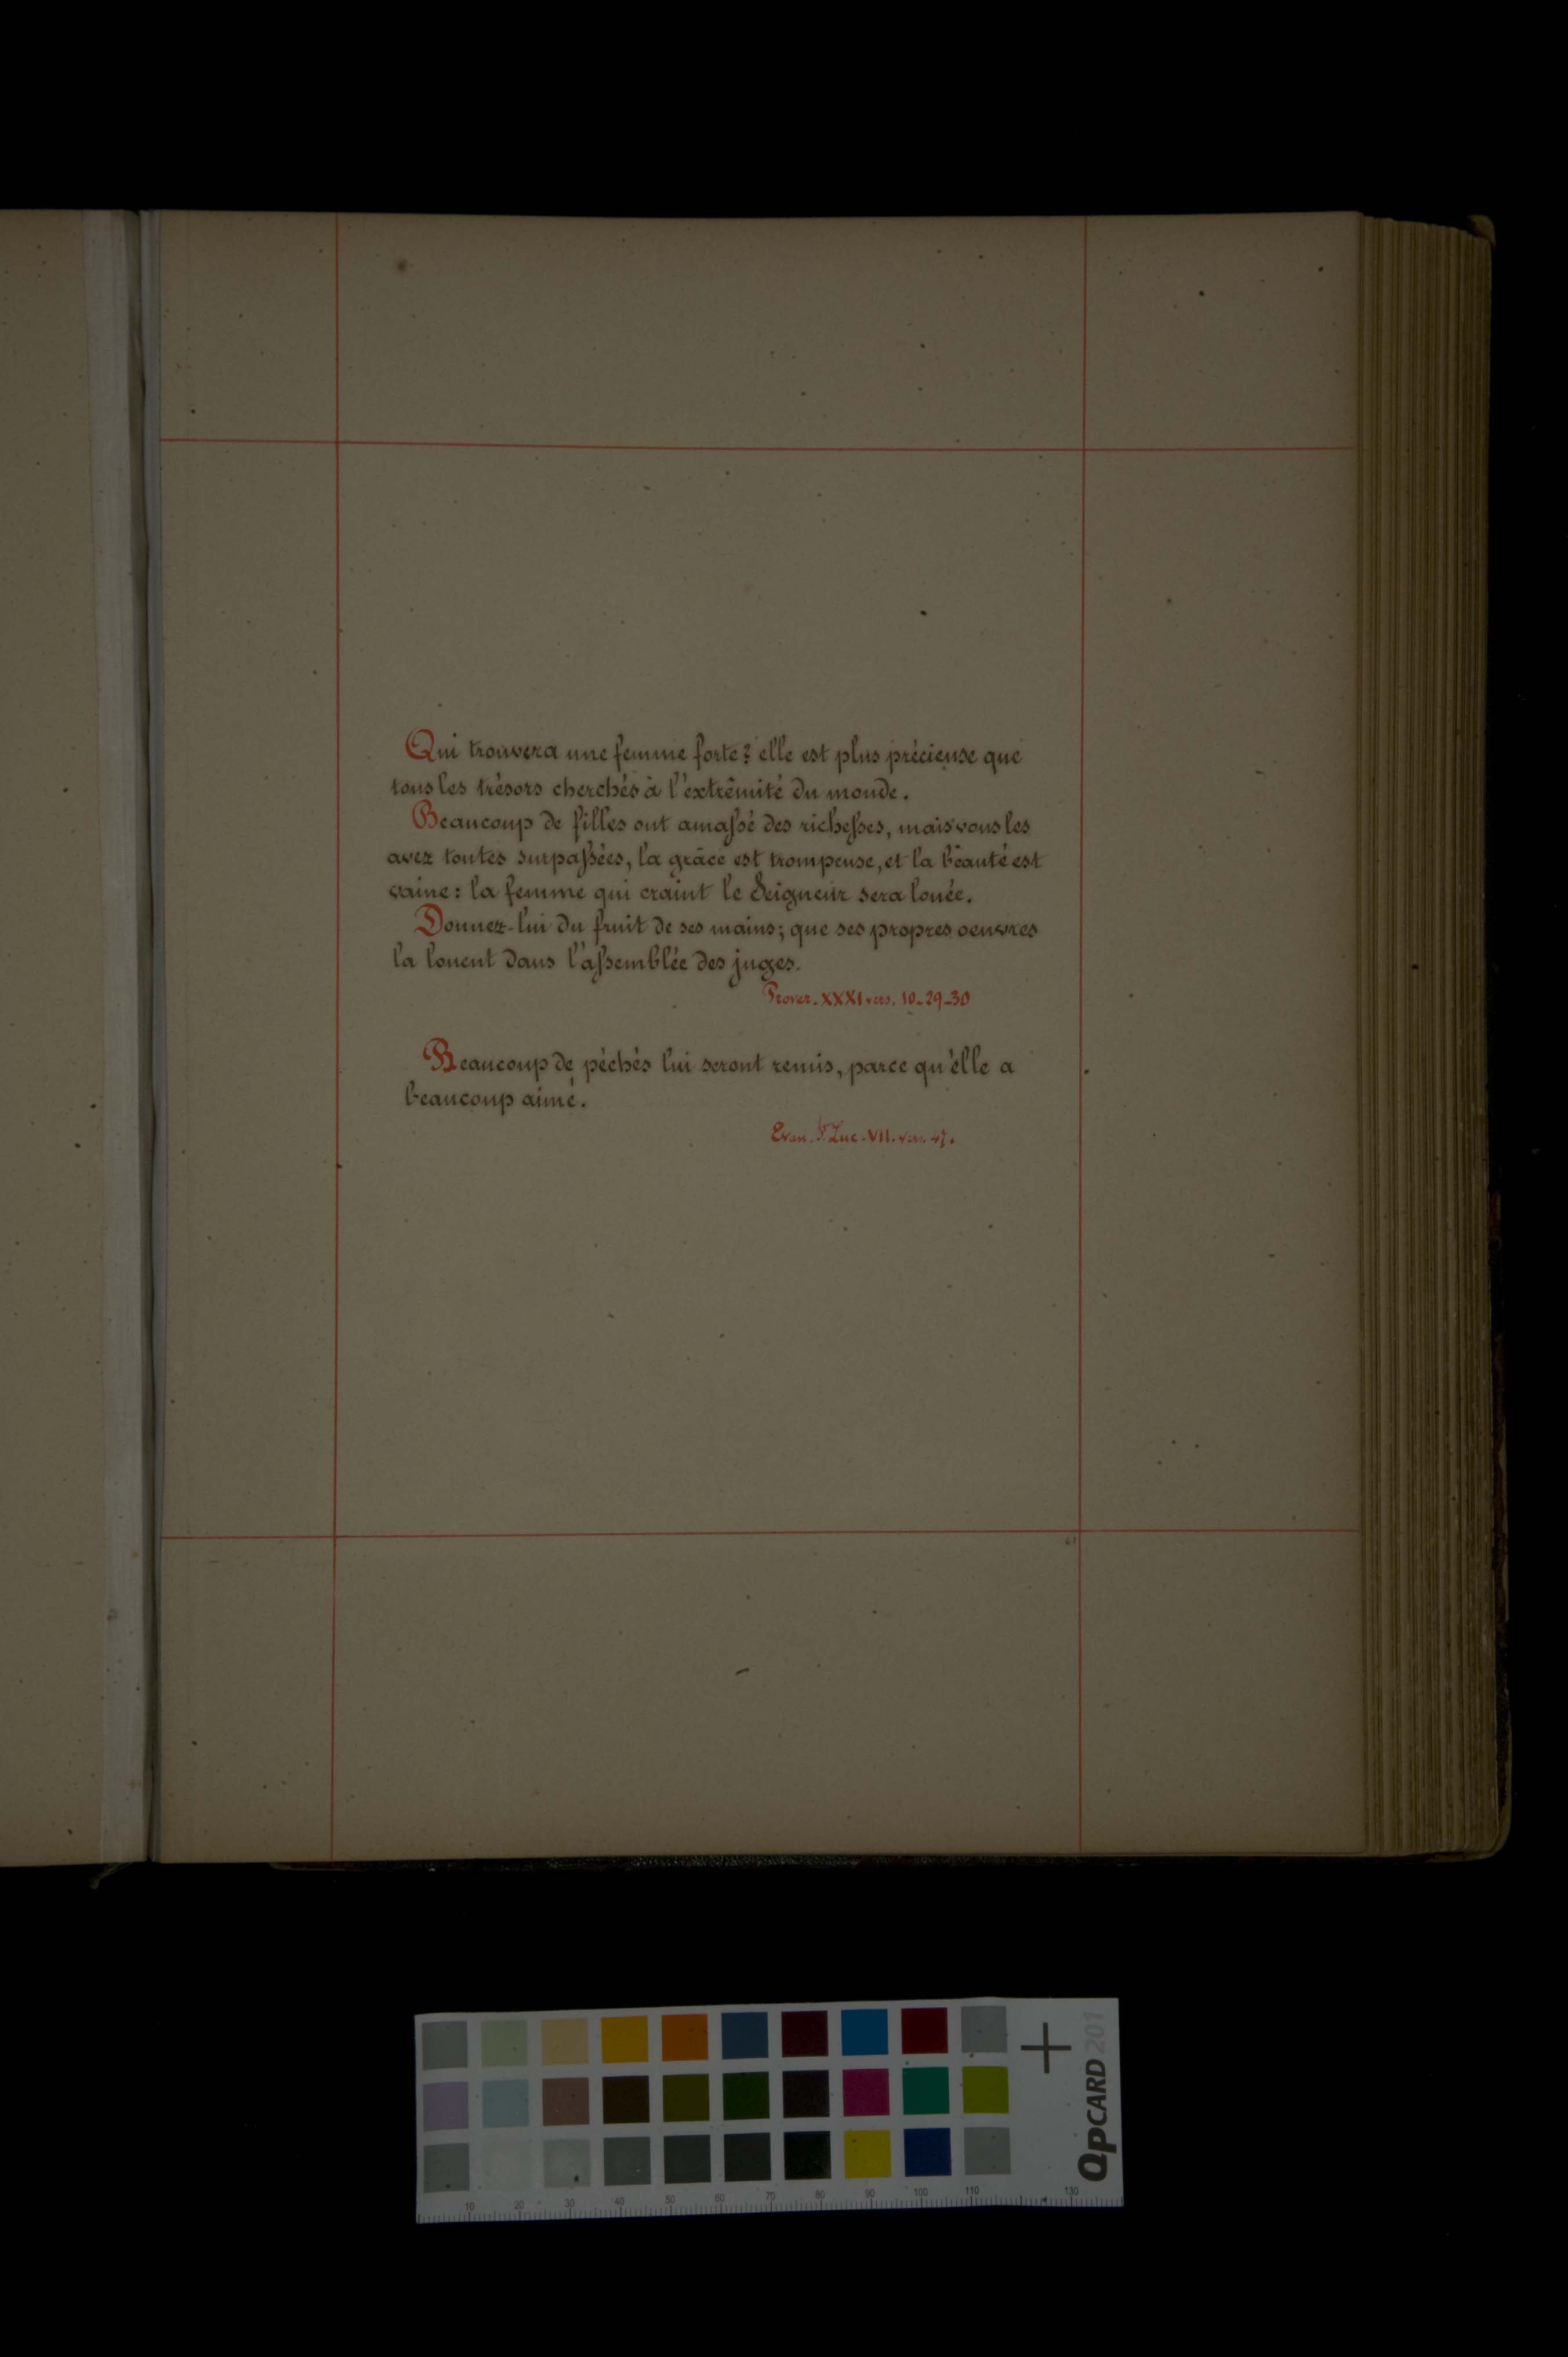 Qui trouvera une femme forte? elle est plus précieuse que
tous les trésors cherchés à l'extrêmité du monde.
Beaucoup de filles ont amassé des richesses, mais vous les
avez toutes surpassées, la grâce est trompeuse, et la beauté est
vaine: la femme qui craint le Seigneur sera louée.
Donnez-lui du fruit de ses mains; que ses propres oeuvres
la louent dans l'assemblée des juges.
Prover. XXXI vers. 10-29-30
Beaucoup de péchés lui seront remis, parce qu'elle a
beaucoup aimé.
Evan. St Luc. VII. vers. 47.
QPCARD 201
10 20 30 40 50 60 70 80 90 100 110 130